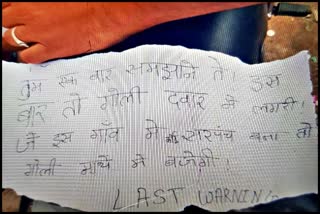 तुम एक बार समझाने ते। इस
बार तो गोली दवार मे लगरी।
जे इस गाँव मे कोई सरपंच बना तो
गोली माथे मे बजेगी।
LAST WARNING